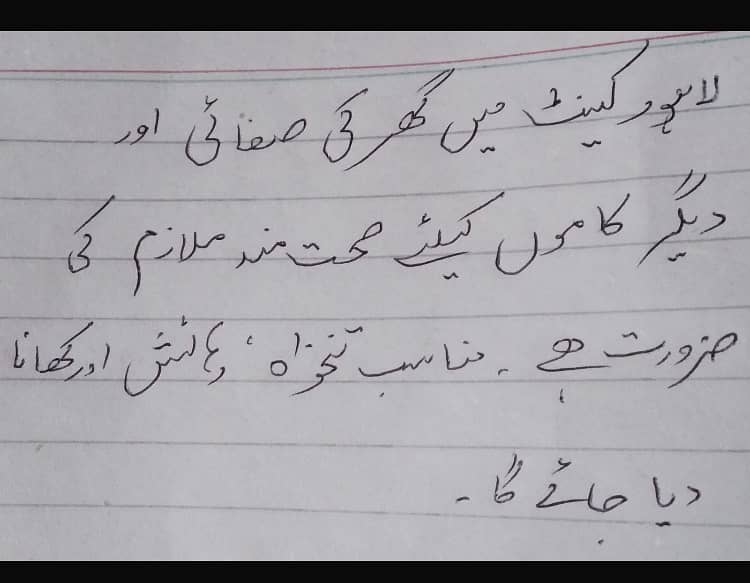 لاہور کینٹ میں گھر کی صفائی اور
دیگر کاموں کیلئے صحت مند ملازم کی
ضرورت ہے ۔ مناسب تنخواہ، رہائش اور کھانا
دیا جائے گا ۔